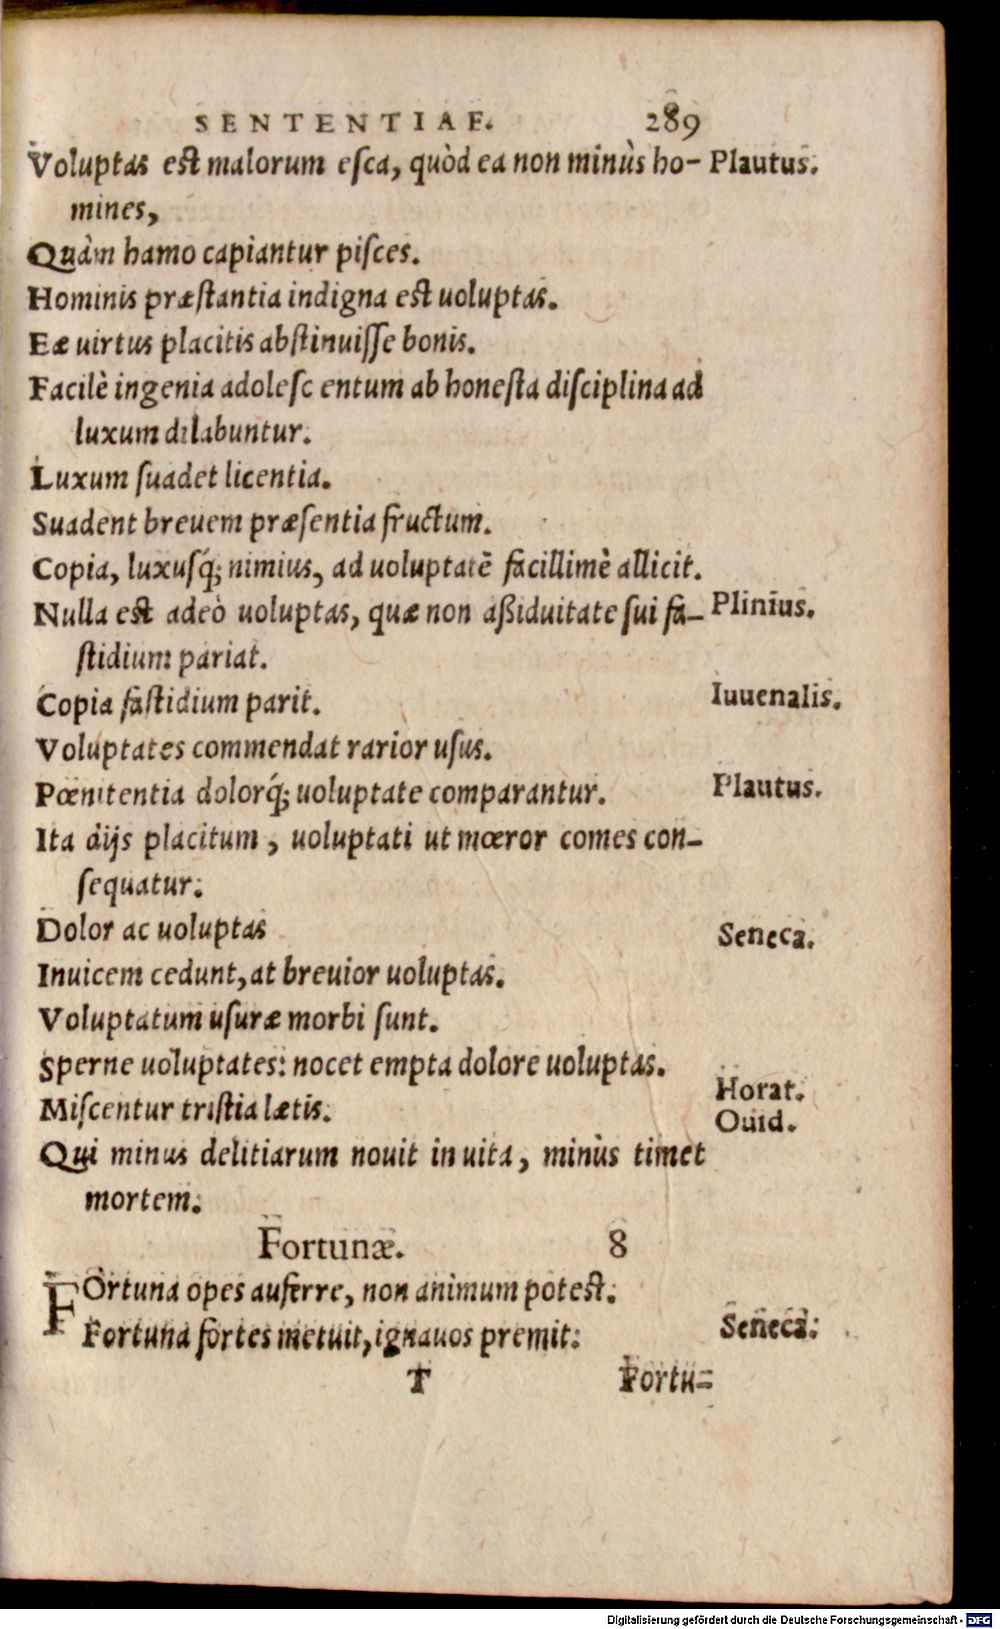 SENTENTIAE. 289
Voluptas est malorum esca, quòd ea non minùs ho- Plautus.
mines,
Quàm hamo capiantur pisces.
Hominis præstantia indigna est uoluptas.
Eæ uirtus placitis abstinuisse bonis.
Facilè ingenia adolesc entum ab honesta disciplina ad
luxum dilabuntur.
Luxum suadet licentia.
Suadent breuem præsentia fructum.
Copia, luxusq́; nimius, ad uoluptatē facillimè allicit.
Nulla est adeò uoluptas, quæ non aßiduitate sui fa- Plinius.
stidium pariat.
Copia fastidium parit. Iuuenalis.
Voluptates commendat rarior usus.
Pœnitentia dolorq́; uoluptate comparantur. Plautus.
Ita dijs placitum, uoluptati ut mœror comes con-
sequatur.
Dolor ac uoluptas Seneca.
Inuicem cedunt, at breuior uoluptas.
Voluptatum usuræ morbi sunt.
Sperne uoluptates: nocet empta dolore uoluptas. Horat.
Miscentur tristia lætis. Ouid.
Qui minus delitiarum nouit in uita, minùs timet
mortem.
Fortunæ. 8
FOrtuna opes auferre, non animum potest.
Fortuna fortes metuit, ignauos premit. Seneca.
T Fortu-
Digitalisierung gefördert durch die Deutsche Forschungsgemeinschaft - DFG